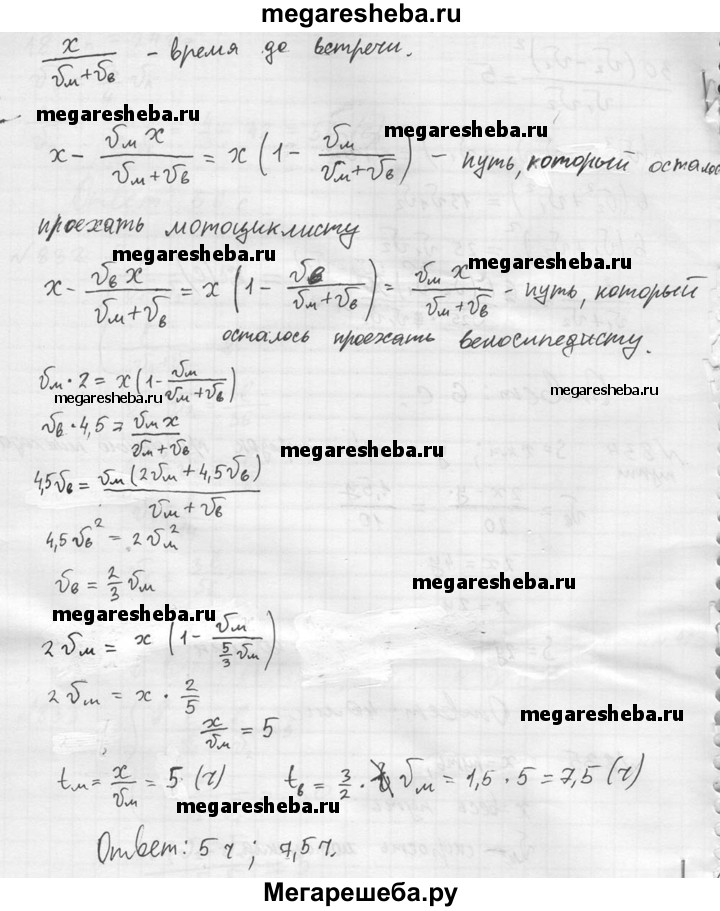 megaresheba.ru
x/(υм+υв) - время до встречи.
megaresheba.ru
megaresheba.ru
x - υм x/(υм+υв) = x (1 - υм/(υм+υв)) - путь, который осталос
проехать мотоциклисту
megaresheba.ru
megaresheba.ru
x - υв x/(υм+υв) = x (1 - υв/(υм+υв)) = υм x/(υм+υв) - путь, который
осталось проехать велосипедисту.
υм · 2 = x (1 - υм/(υм+υв))
megaresheba.ru
megaresheba.ru
υв · 4,5 = υм x/(υм+υв)
megaresheba.ru
4,5υв = υм (2υм + 4,5υв)/(υм+υв)
4,5υв² = 2υм²
υв = 2/3 υм
megaresheba.ru
megaresheba.ru
2υм = x (1 - υм/(5/3 υм))
2υм = x · 2/5
megaresheba.ru
x/υм = 5
tм = x/υм = 5 (ч) tв = 3/2 · υм = 1,5 · 5 = 7,5 (ч)
megaresheba.ru
Ответ: 5 ч; 7,5 ч.
Мегарешеба.ру